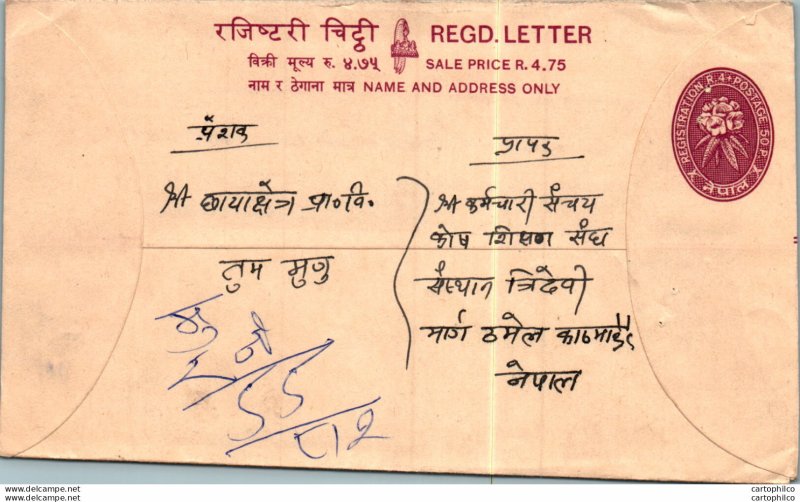 रजिष्टरी चिट्ठी REGD. LETTER
विक्री मूल्य रु. ४.७५ SALE PRICE R. 4.75
नाम र ठेगाना मात्र NAME AND ADDRESS ONLY
REGISTRATION R. 4 + POSTAGE 50 P.
नेपाल
श्री छायाक्षेत्र प्रा॰वि॰
तुम मुगु
श्री कर्मचारी संचय
कोष शिक्षण संघ
संस्थान त्रिदेवी
मार्ग ठमेल काठमाडौं
नेपाल
cartophilco
cartophilco